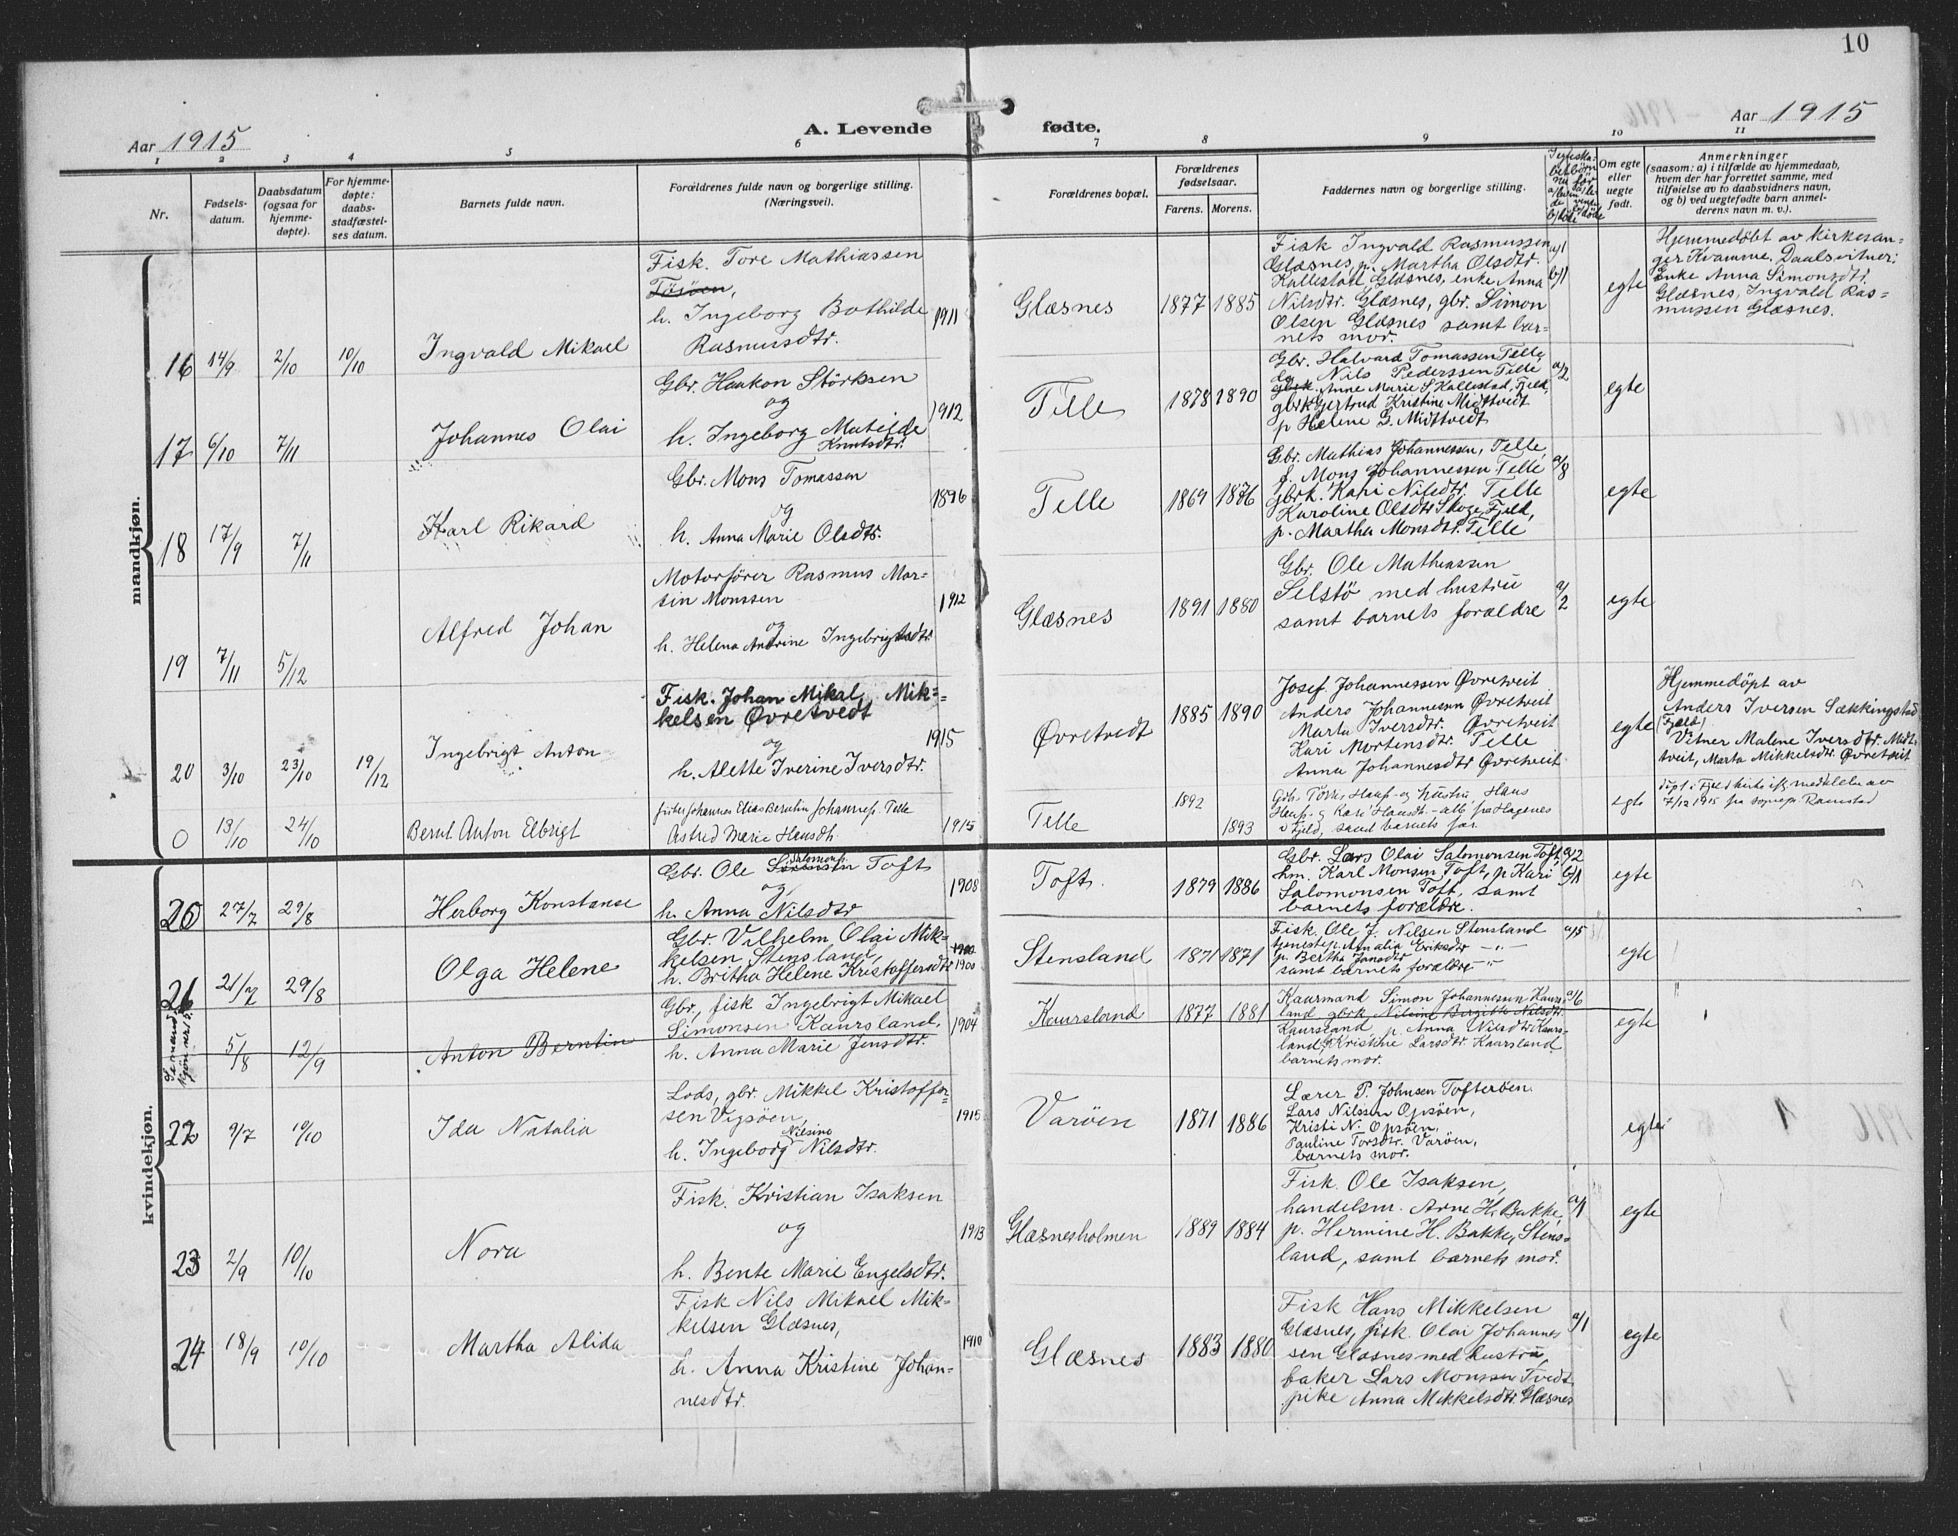 10
Aar 1915
A. Levende
fødte.
Aar 1915
1 2 3 4 5 6 7 8 9 10 11
Nr.
Fødsels-
datum.
Daabsdatum
(ogsaa for
hjemme-
døpte).
For hjemme-
døpte:
daabs-
stadfæstel-
ses datum.
Barnets fulde navn.
Forældrenes fulde navn og borgerlige stilling.
(Næringsvei).
Forældrenes bopæl.
Forældrenes
fødselsaar.
Farens. Morens.
Faddernes navn og borgerlige stilling.
Om egte
eller
uegte
født.
Anmerkninger
(saasom: a) i tilfælde av hjemmedaab,
hvem der har forrettet samme, med
tilføielse av to daabsvidners navn,
og b) ved uegtefødte barn anmel-
derens navn m. v.).
mandkjøn.
16 14/9 2/10 10/10
Ingvald Mikael
Fisk. Tore Mathiassen
Tøsøen,
h. Ingeborg Bothilde
Rasmusdtr.
1911
Glæsnes
1877 1885
Fisk Ingvald Rasmussen
Glæsnes, p. Martha Olsdtr.
Kallestad, Glæsnes, enke Anna
Nilsdtr. Glæsnes, gbr. Simon
Olsen Glæsnes samt bar-
nets mor.
a/1
b/1
egte
Hjemmedøbt av kirkesan-
ger Kvamme. Daabsvitner:
Enke Anna Simonsdtr.
Glæsnes, Ingvald Ras-
mussen Glæsnes.
17 6/10 7/11
Johannes Olai
Gbr. Haakon Størksen
og
h. Ingeborg Matilde
Knutsdtr.
1912
Telle
1878 1890
Gbr. Halvard Tomassen Telle
do Nils Pederssen Telle
gbrk. Anne Marie S. Kallestad, Fjeld,
gbrk Gjertrud Kristine Midttveit
p Helene G. Midttvedt
a/2
egte
18 17/9 7/11
Karl Rikard
Gbr. Mons Tomassen
og
h. Anna Marie Olsdtr.
1896
Telle
1869 1876
Gbr. Mathias Johannessen, Telle,
f. Mons Johannessen Telle
gbrk. Kari Nilsdtr. Telle
Karoline Olsdtr Skoge, Fjeld,
p. Martha Monsdtr. Telle
a/8
egte
19 7/11 5/12
Alfred Johan
Motorfører Rasmus Mar-
tin Monssen
og
h. Helena Andrine Ingebrigtsdtr.
1912
Glæsnes
1891 1880
Gbr. Ole Mathiassen
Selstø med hustru
samt barnets forældre
a/2
egte
20 3/10 23/10 19/12
Ingebrigt Anton
Fisk. Johan Mikal Mik-
kelsen Øvretvedt
og
h. Alette Iverine Iversdtr.
1915
Øvretvedt
1885 1890
Josef Johannessen Øvretveit
Anders Johannessen Øvretveit
Marta Iversdtr. Øvretveit
Kari Mortensdtr. Telle
Anna Johannesdtr Øvretveit
egte
Hjemmedøpt av
Anders Iversen Sækkingstad
(Fjeld)
Vitner Malene Iversdtr. Midt-
tveit, Marta Mikkelsdtr. Øvretveit
0 13/10 24/10
Bernt Anton Elbrigt
fisker Johannes Elias Berntin Johannes. Telle
Astrid Marie Hansdtr
1915
Telle
1892 1893
egte
kvindekjøn.
20 27/7 29/8
Herborg Konstanse
Gbr. Ole Salomons. Toft
og
h. Anna Nilsdtr
1908
Toft.
1879 1886
Gbr. Lars Olai Salomonsen Toft,
hm. Karl Monsen Toft, p. Kari
Salomonsen Toft, samt
barnets forældre.
a/2
b/1
egte
21 21/7 29/8
Olga Helene
Gbr. Vilhelm Olai Mik-
kelsen Stensland,
h. Britha Helene Kristoffersdtr
1900
1900
Stensland
1871 1871
Fisk. Ole J. Nilsen Stensland
tjenestep. Amalia Eriksdtr -"-
p. Bertha Jonsdtr
samt barnets forældre -"-
a/5
egte
Se mand-
kjøn nr 15.
5/8 12/9
Anton Berntin
Gbr, fisk Ingebrigt Mikael
Simonsen Kaursland,
h. Anna Marie Jensdtr.
1904
Kaursland
1877 1881
Kaurmand Simon Johannesen Kaurs-
land gbrk. Nilsine Birgitte Nilsdtr.
Kaursland, p. Anna Nilsdtr. Kaurs-
land, Kristine Larsdtr. Kaursland,
barnets mor.
a/6
egte
22 9/7 10/10
Ida Natalia
Lods, gbr. Mikkel Kristoffer-
sen Vigsøen,
Nilsine
h. Ingeborg Nilsdtr.
1915
Varøen
1871 1886
Lærer P. Johnsen Tofterøen.
Lars Nilssen Opsøen,
Kristi N. Opsøen,
Pauline Torsdtr. Varøen,
barnets mor.
egte
1
1916
23 2/9 10/10
Nora
Fisk. Kristian Isaksen
og
h. Bente Marie Engelsdtr.
1913
Glæsnesholmen
1889 1884
Fisk. Ole Isaksen,
handelsm. Arne H. Bakke,
p. Hermine H. Bakke, Stens-
land, samt barnets mor.
a/1
egte
24 18/9 10/10
Martha Alida
Fisk Nils Mikael Mik-
kelsen Glæsnes,
h. Anna Kristine Johan-
nesdtr.
1910
Glæsnes
1883 1880
Fisk Hans Mikkelsen
Glæsnes, fisk. Olai Johannes
sen Glæsnes med hustru,
baker Lars Monssen Tvedt
pike Anna Mikkelsdtr. Glæsnes
a/1
egte